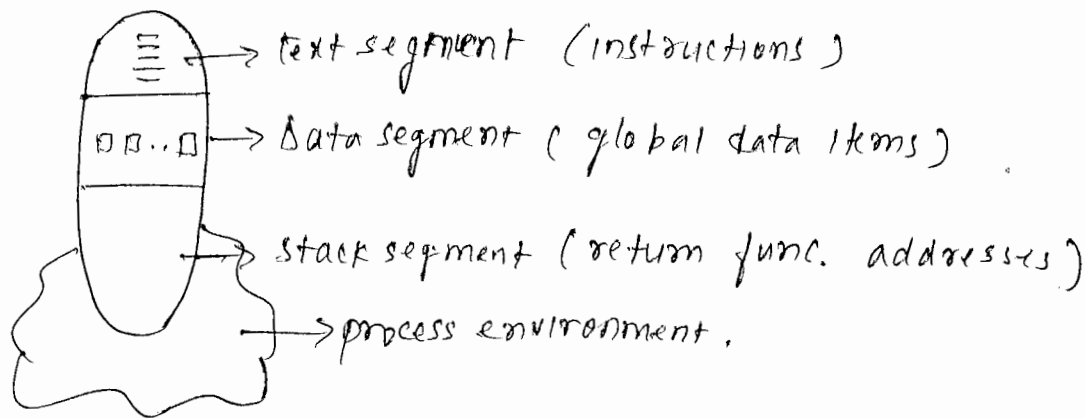 text segment (instructions)
Data segment (global data items)
stack segment (return func. addresses)
process environment.